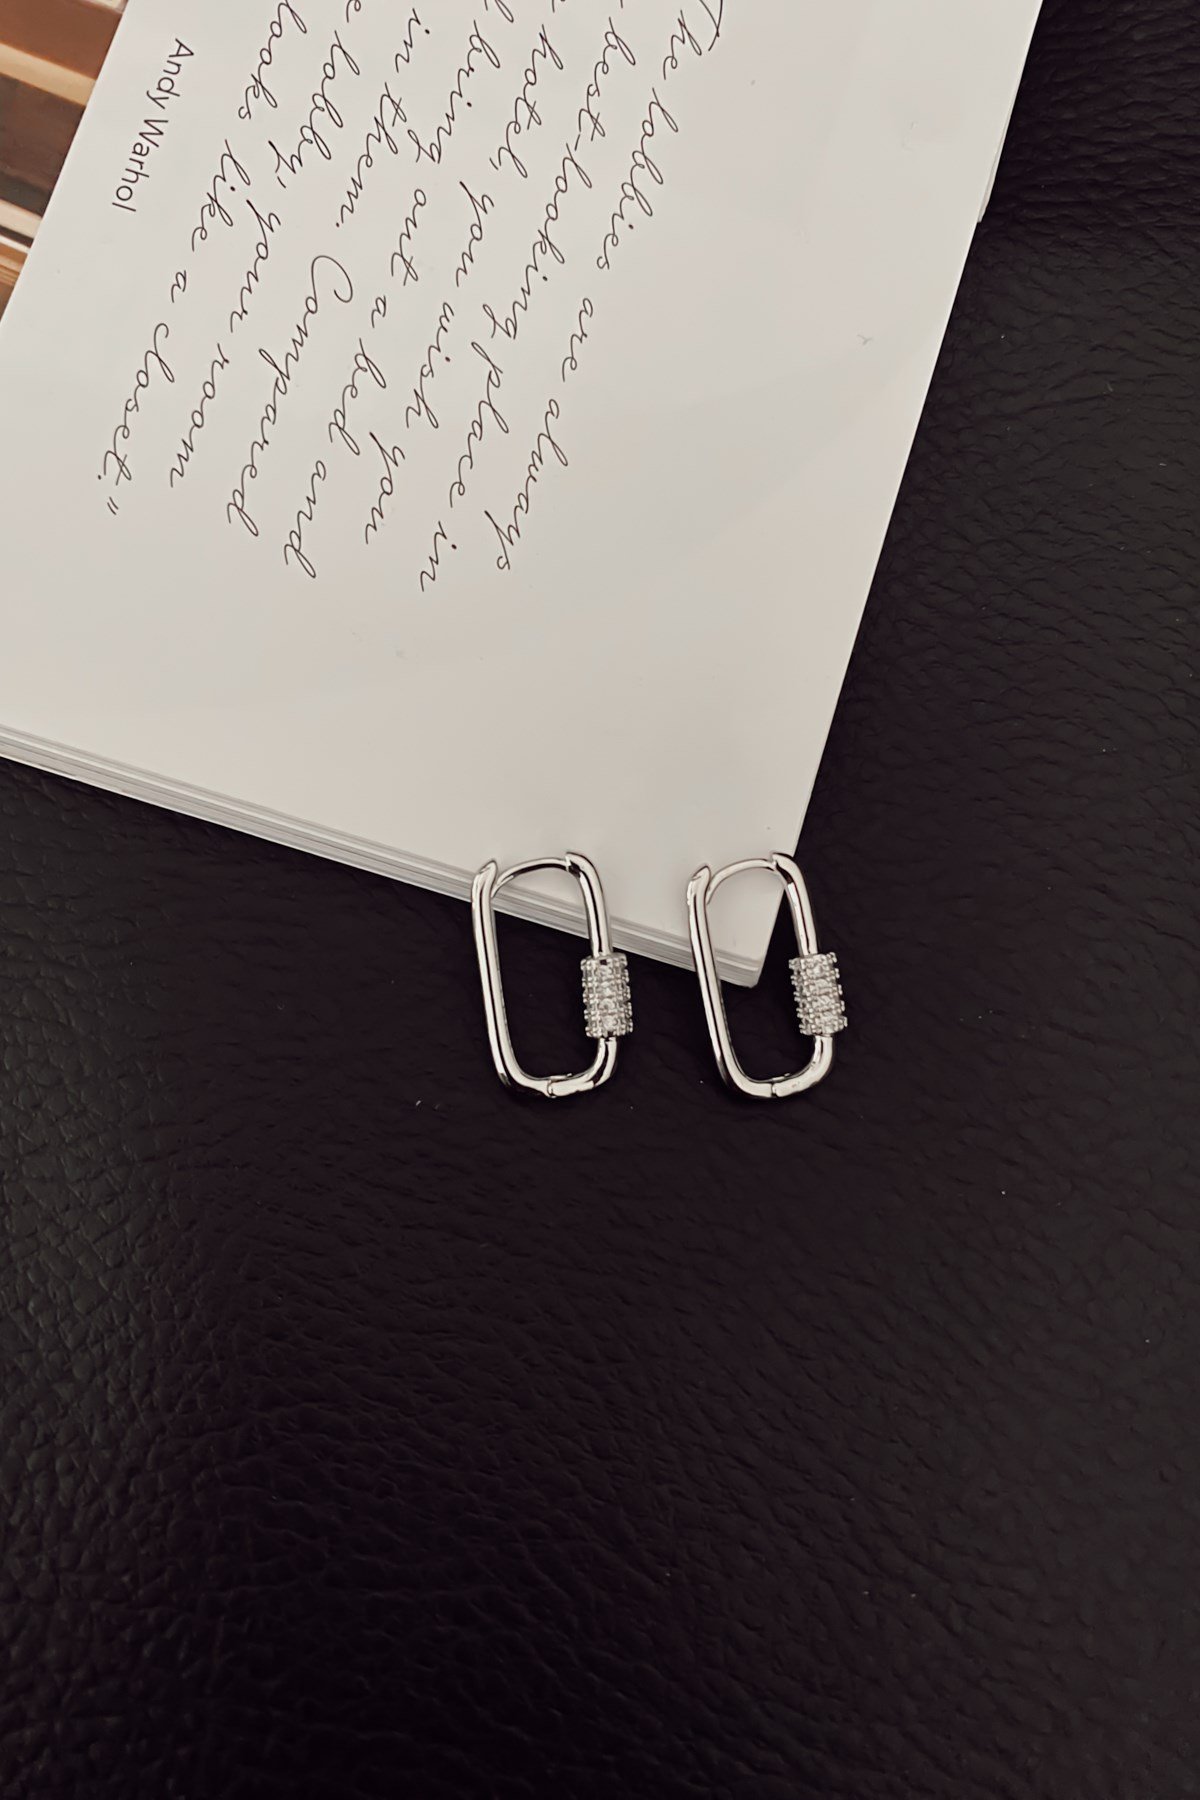 The lobbies are always
best-looking place in
hotel, you wish you
bring out a bed and
in them. Compared
lobby, your room
looks like a closet."
Andy Warhol